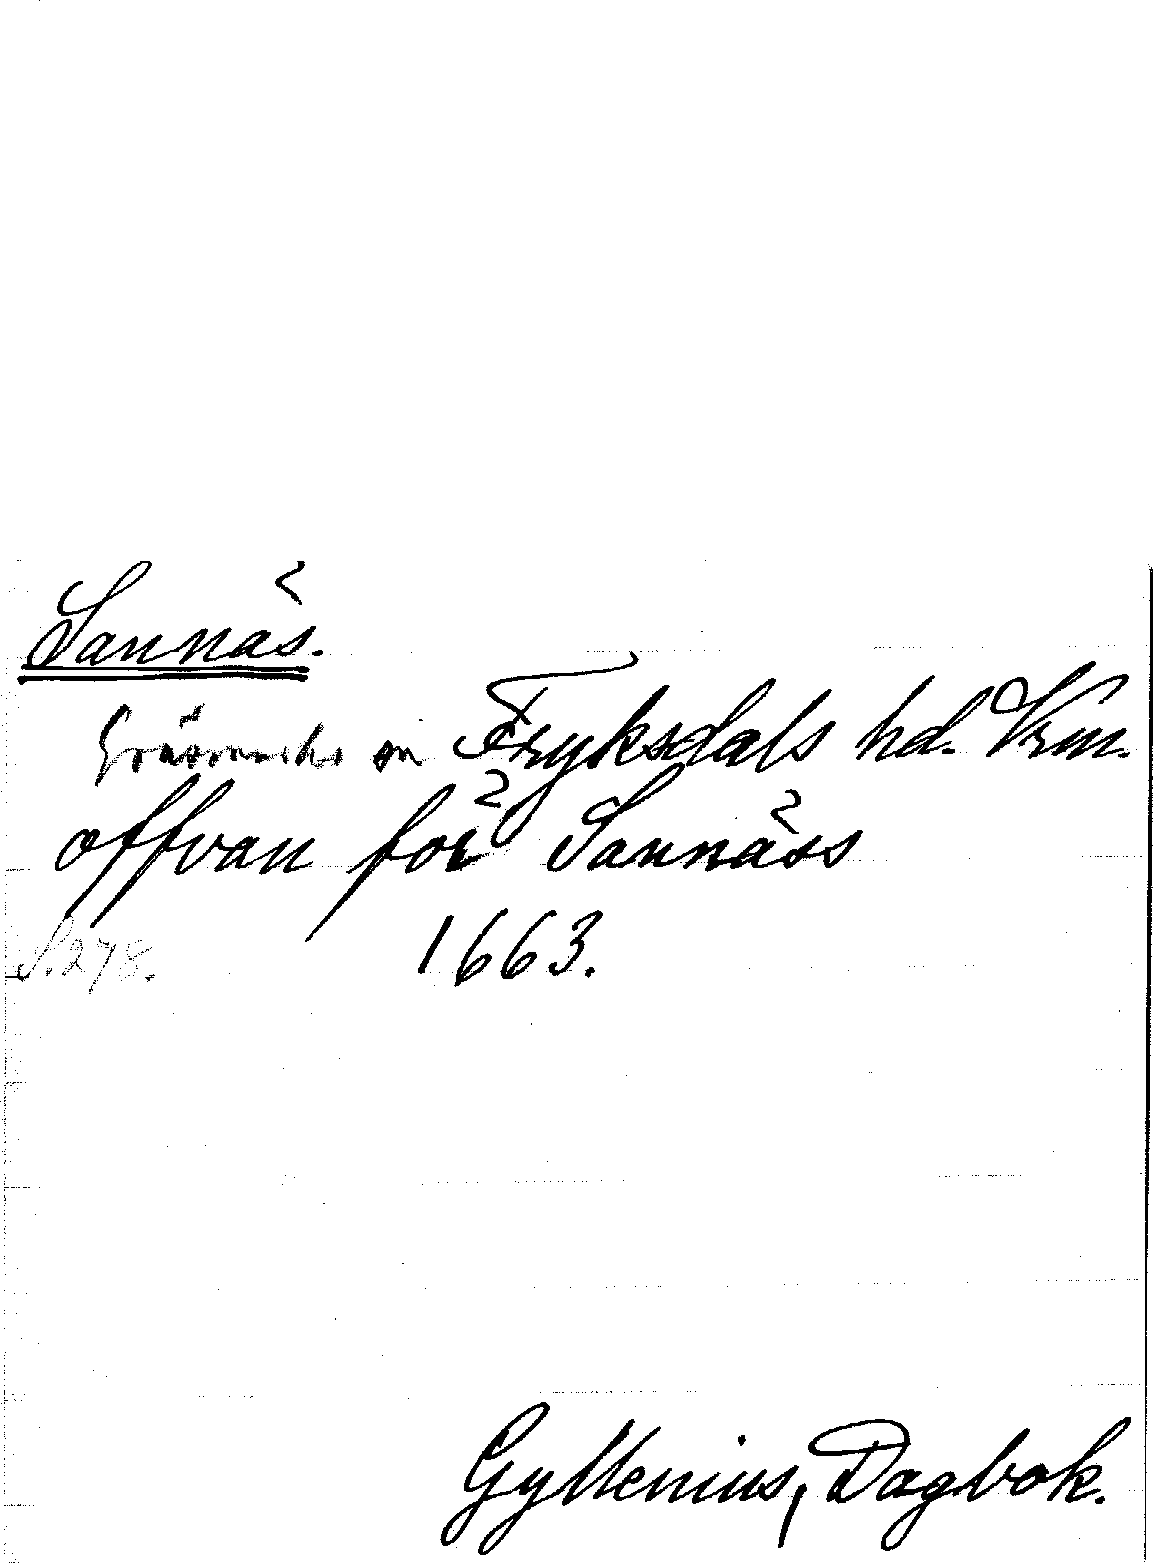 Sannäs.
Gräsmarks sn Fryksdals hd. Vrm.
offvan för Sannäss
S. 278. 1663.
Gyllenius, Dagbok.